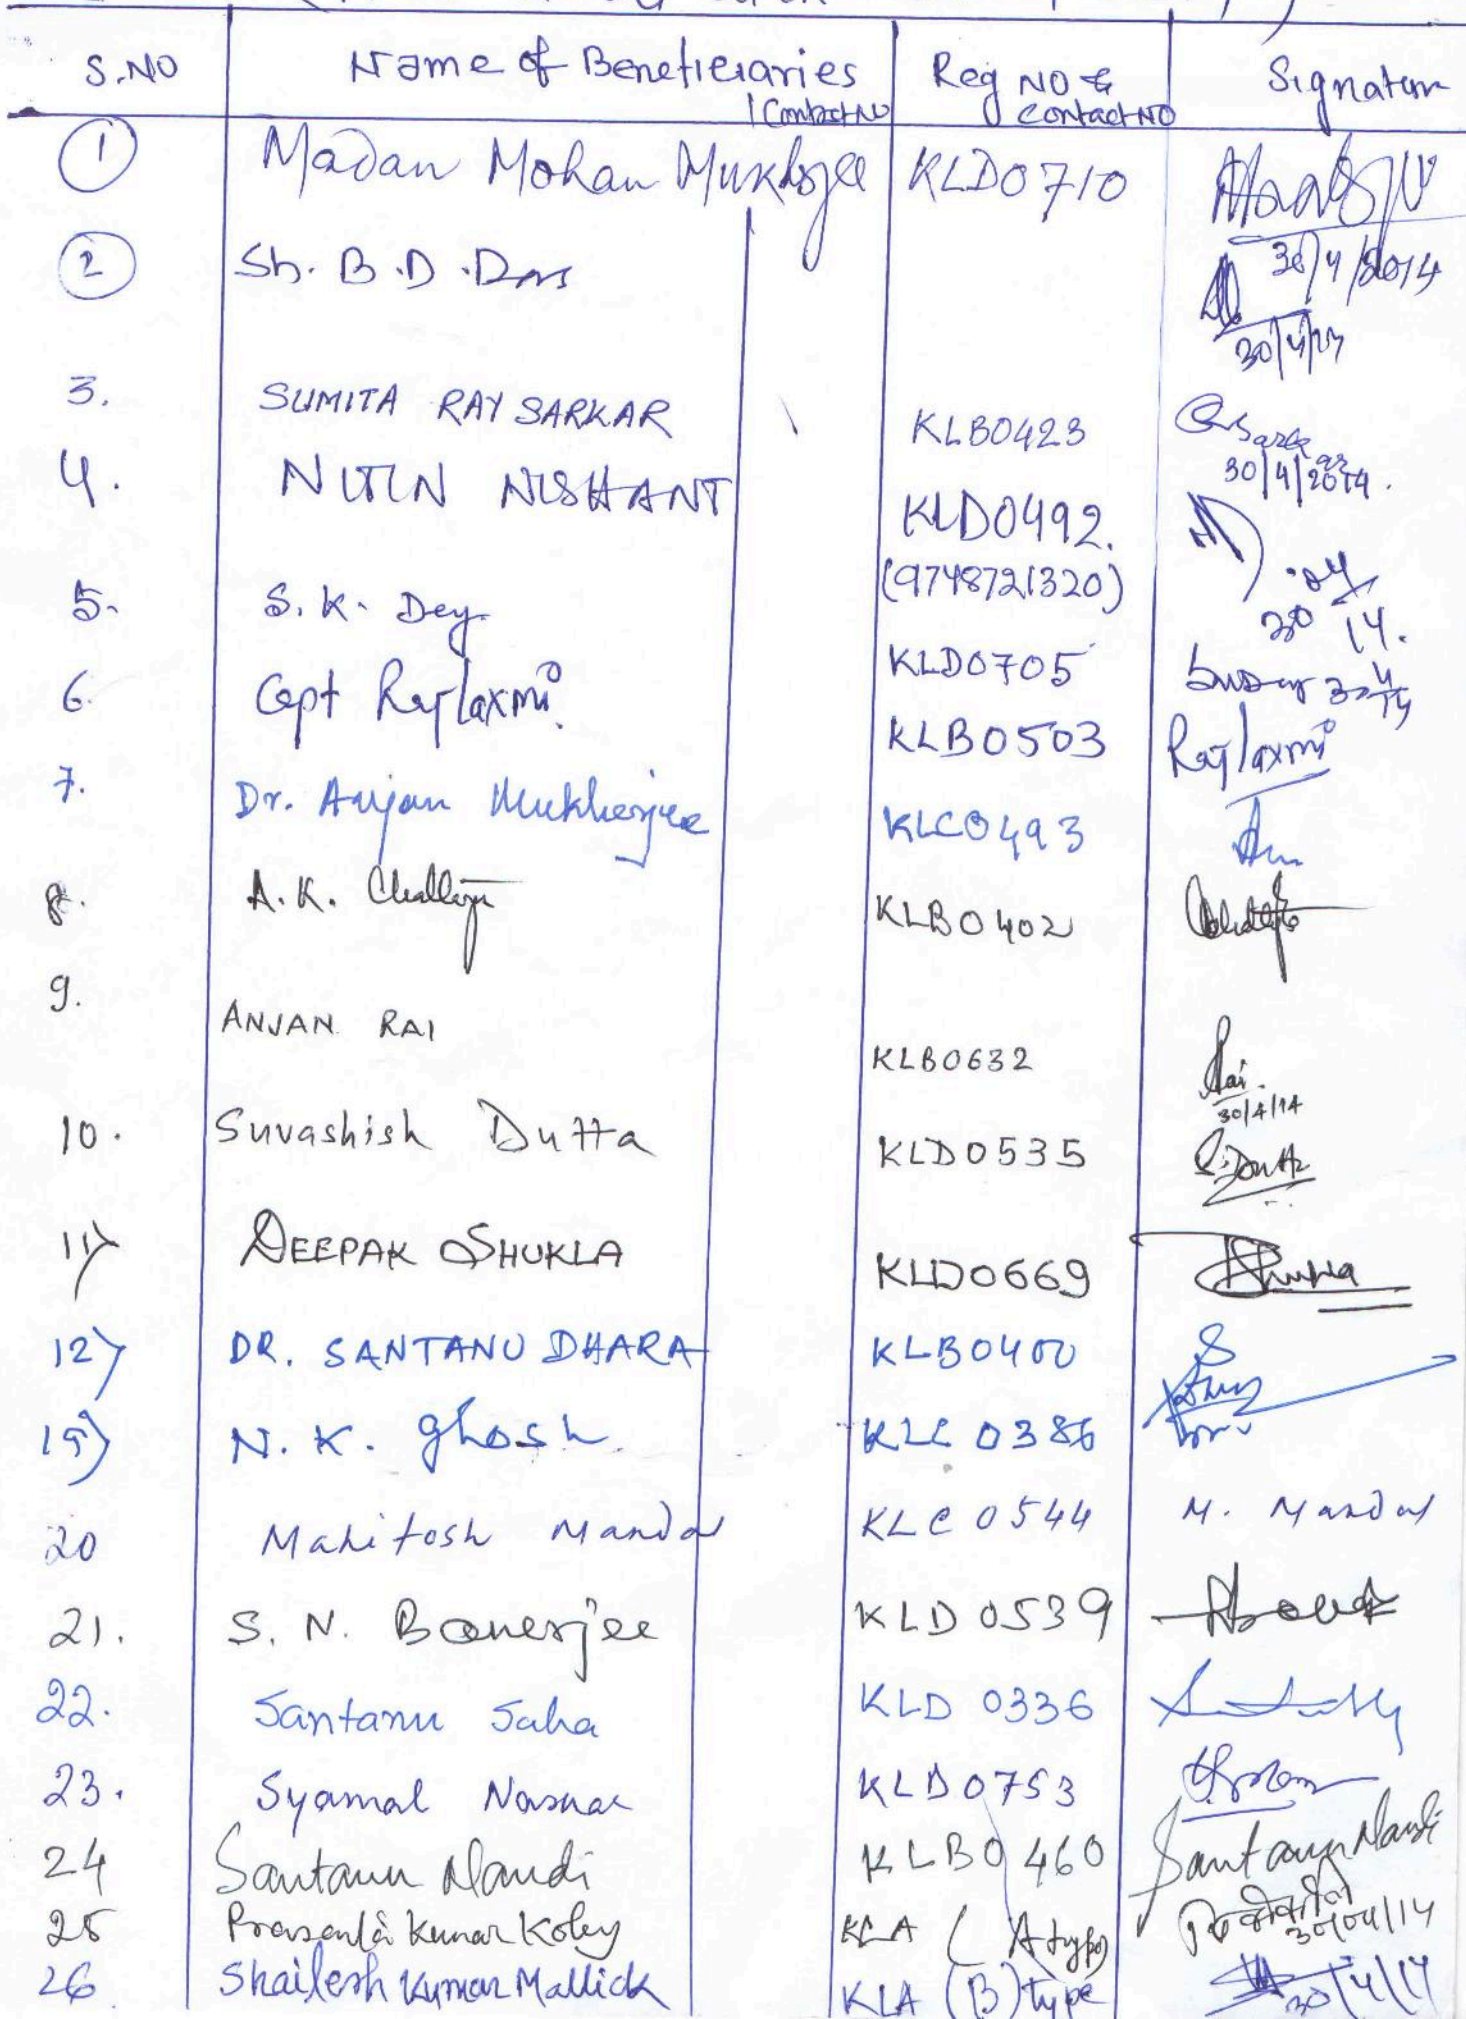 S.NO Name of Beneficiaries Reg NO & Signature
Contact NO Contact NO
1 Madan Mohan Mukherjee KLD0710
30/4/2014
2 Sh. B.D. Das
30/4/14
3. SUMITA RAY SARKAR KLB0423 Sarkar
30/4/2014.
4. NITIN NISHANT KLD0492.
(9748721320)
30/04/14.
5. S.K. Dey KLD0705
6. Capt Rajlaxmi. KLB0503 Rajlaxmi
7. Dr. Anjan Mukherjee KLC0493
8. A.K. Chatterjee KLB0402
9. ANJAN RAI KLB0632 Rai.
30/4/14
10. Suvashish Dutta KLD0535 S. Dutta
11) DEEPAK SHUKLA KLD0669 Shukla
12) DR. SANTANU DHARA KLB0400
19) N.K. Ghosh KLC 0386
20 Mahitosh Mandal KLC 0544 M. Mandal
21. S.N. Banerjee KLD 0539
22. Santanu Saha KLD 0336
23. Syamal Naskar KLD0753
24 Santanu Nandi KLB0460 Santanu Nandi
25 Prasanta Kumar Koley KLA (A type)
30/04/14
26 Shailesh Kumar Mallick KLA (B) type
30/4/14